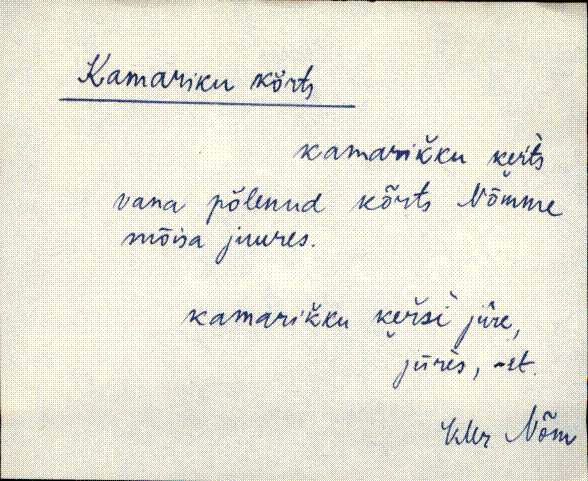 Kamariku kõrts
kamarikku ker̀ts
vana põlenud kõrts Nõmme
mõisa juures.
kamarikku kersì jūre,
jūrès, -et.
Nõm